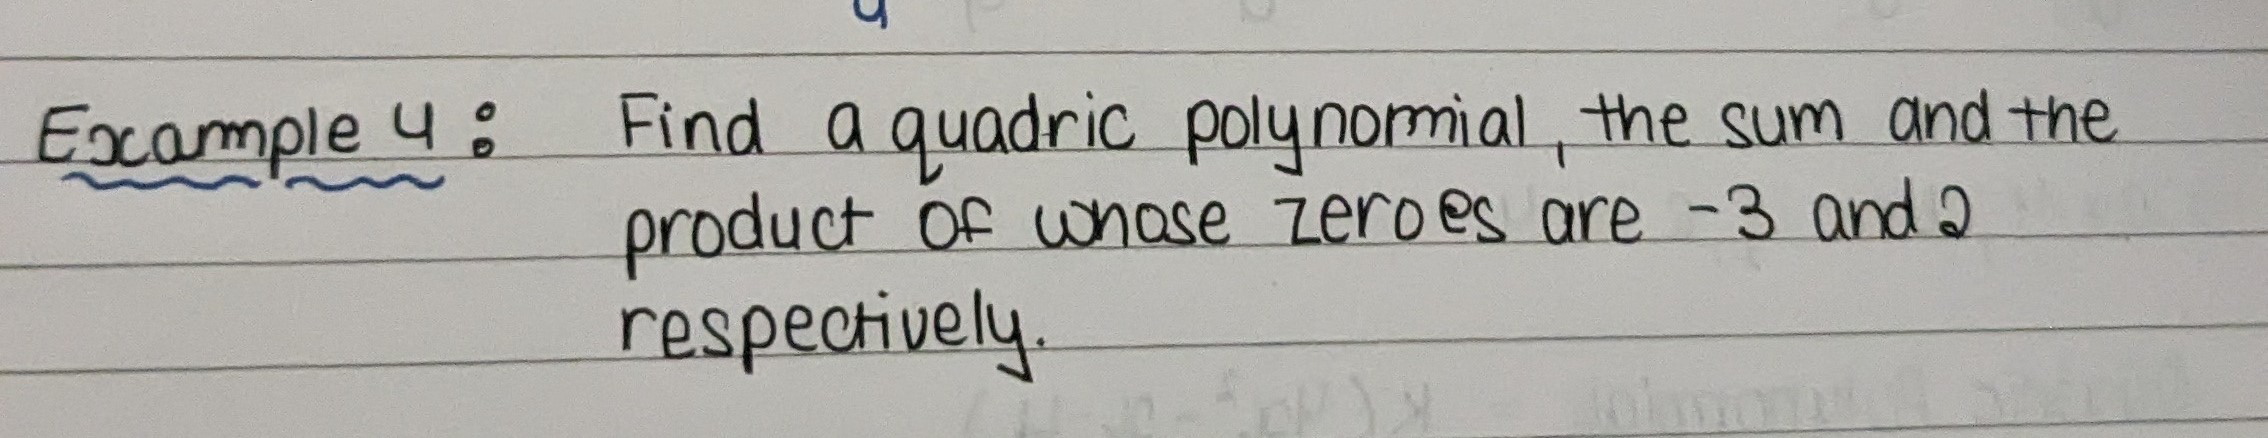 Example 4: Find a quadric polynomial, the sum and the
product of whose zeroes are -3 and 2
respectively.